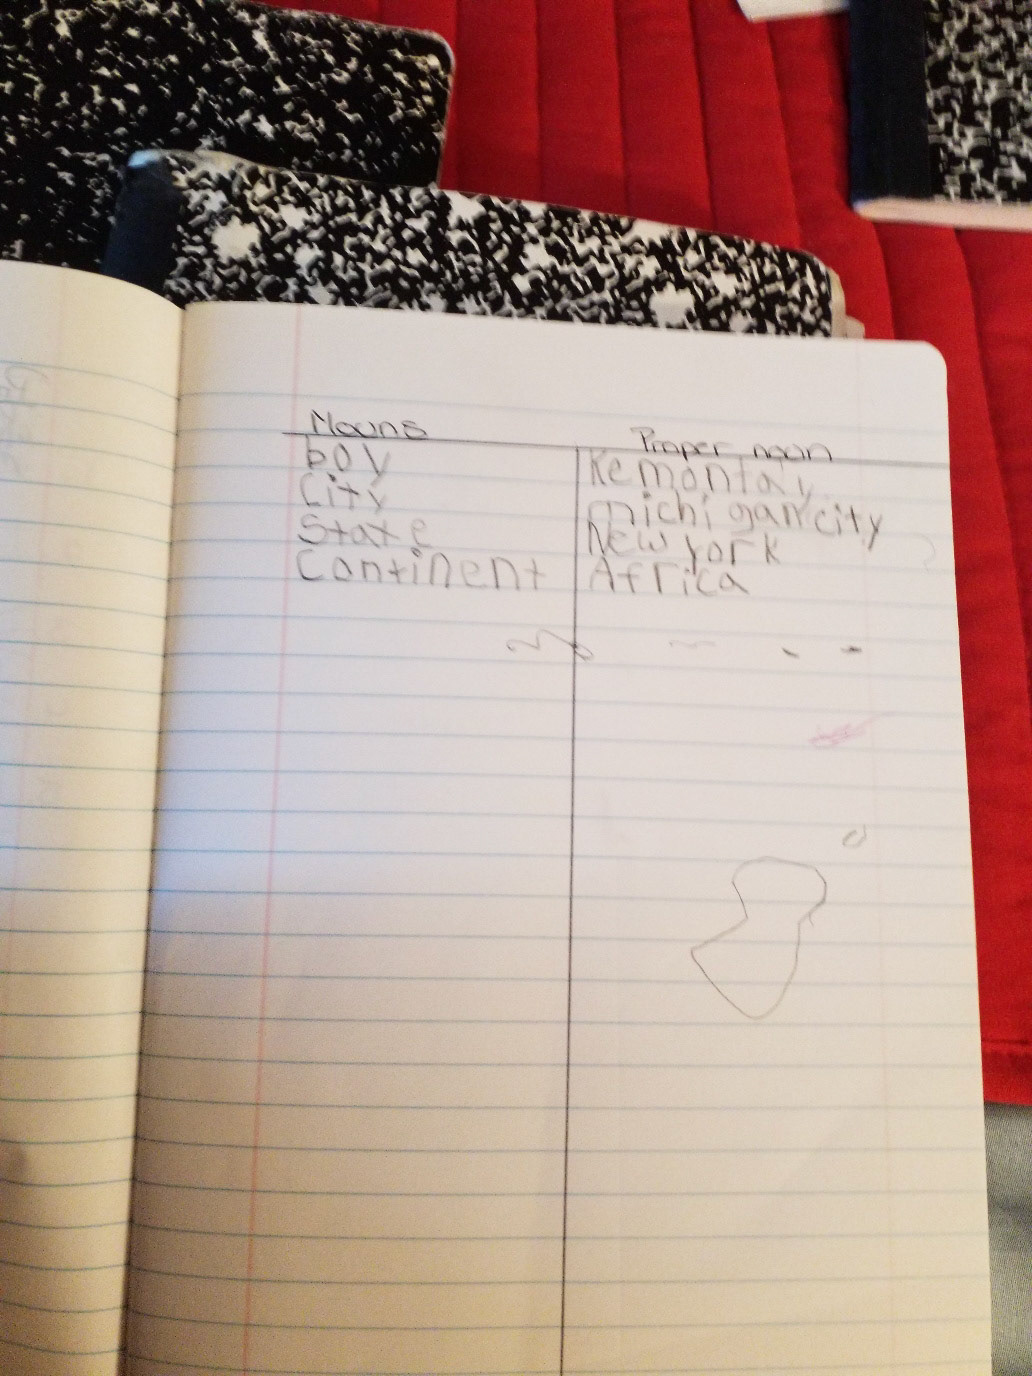 Nouns
Proper noun
boy
Kemontay
City
michigan city
State
New york
Continent
Africa